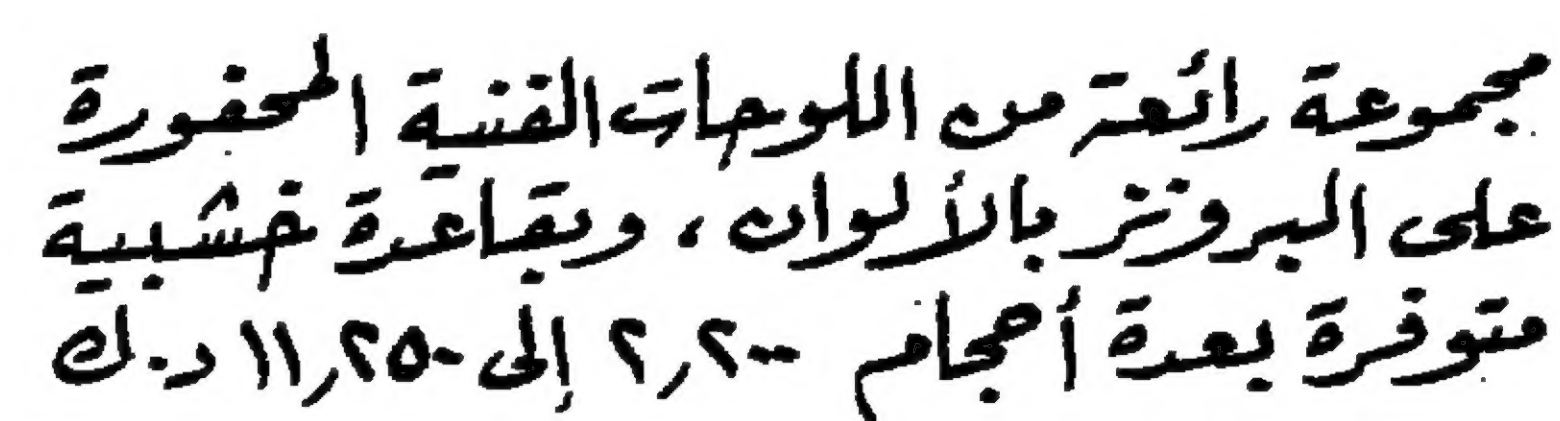 مجموعة رائعة من اللوحات الفنية المحفورة
على البرونز بالألوان، وبقاعدة خشبية
متوفرة بعدة أحجام ٢٫٢٠٠ إلى ١١٫٢٥٠ د.ك